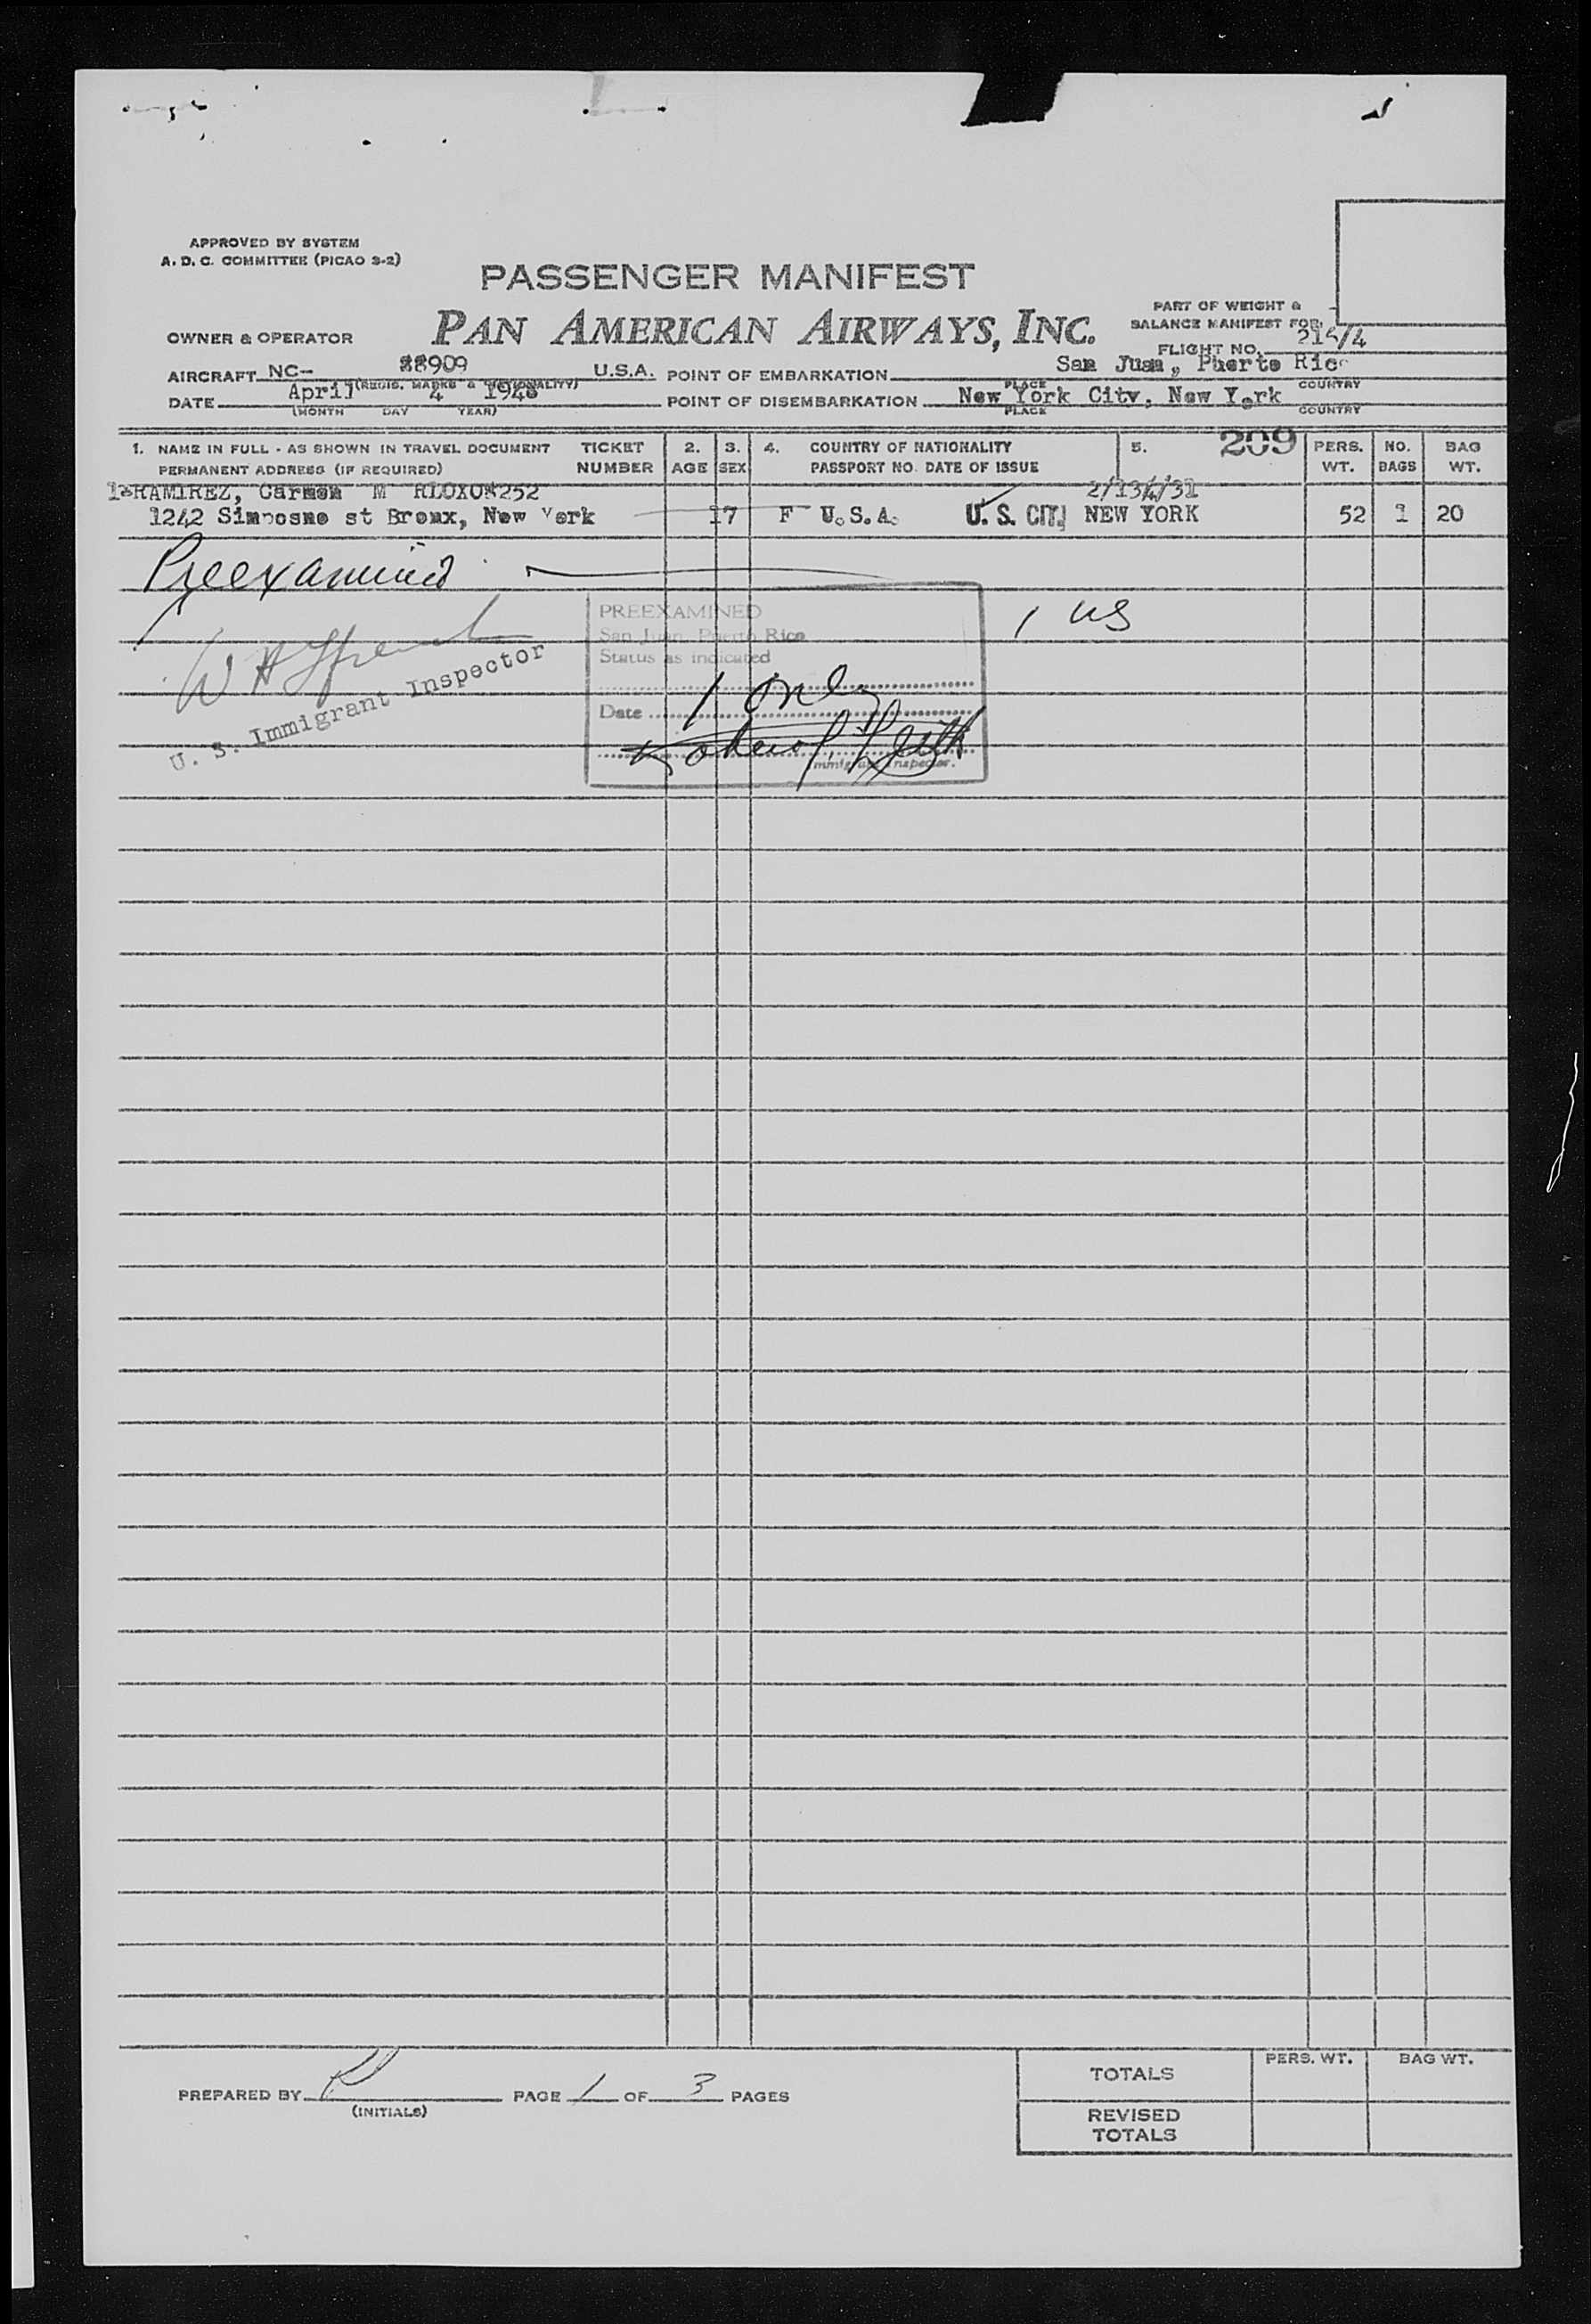 APPROVED BY SYSTEM
A. D. C. COMMITTEE (PICAO S-2)
PASSENGER MANIFEST
PART OF WEIGHT &
BALANCE MANIFEST FOR
OWNER & OPERATOR PAN AMERICAN AIRWAYS, INC.
FLIGHT NO. 215/4
AIRCRAFT NC- 88909 U.S.A. POINT OF EMBARKATION San Juan, Puerto Rico
(REGIS. MARKS & NATIONALITY) PLACE COUNTRY
DATE April 4 1948 POINT OF DISEMBARKATION New York City, New York
(MONTH DAY YEAR) PLACE COUNTRY
1. NAME IN FULL - AS SHOWN IN TRAVEL DOCUMENT TICKET 2. 3. 4. COUNTRY OF NATIONALITY 5. 209 PERS. NO. BAG
PERMANENT ADDRESS (IF REQUIRED) NUMBER AGE SEX PASSPORT NO. DATE OF ISSUE WT. BAGS WT.
RAMIREZ, Carmen M 2/13/31
1242 Simposne st Bronx, New York 17 F U.S.A. U.S. CIT. NEW YORK 52 1 20
Preexamined
PREEXAMINED
San Juan, Puerto Rico 1 US
Status as indicated
U. S. Immigrant Inspector
Date 1 only
Immigrant Inspector.
PREPARED BY PAGE 1 OF 3 PAGES
(INITIALS)
PERS. WT. BAG WT.
TOTALS
REVISED
TOTALS